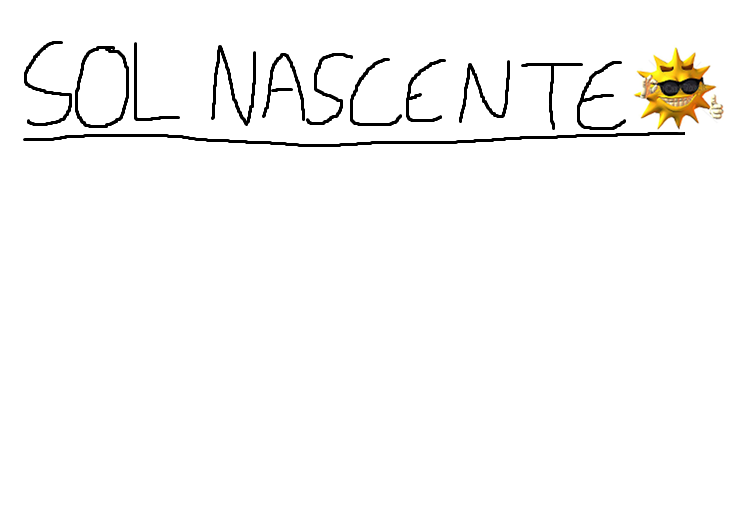 SOL NASCENTE